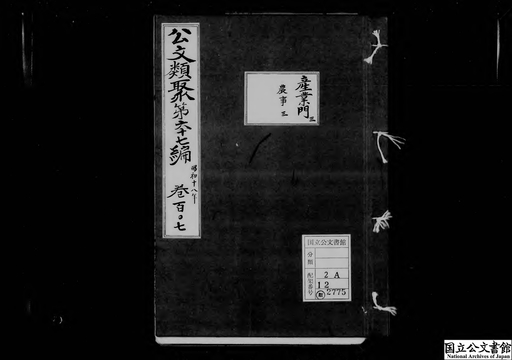 公文類聚第六十七編
昭和十八年
巻百〇七
産業門三
農事三
国立公文書館
分類
配架番号
2A
12
2775
国立公文書館
National Archives of Japan